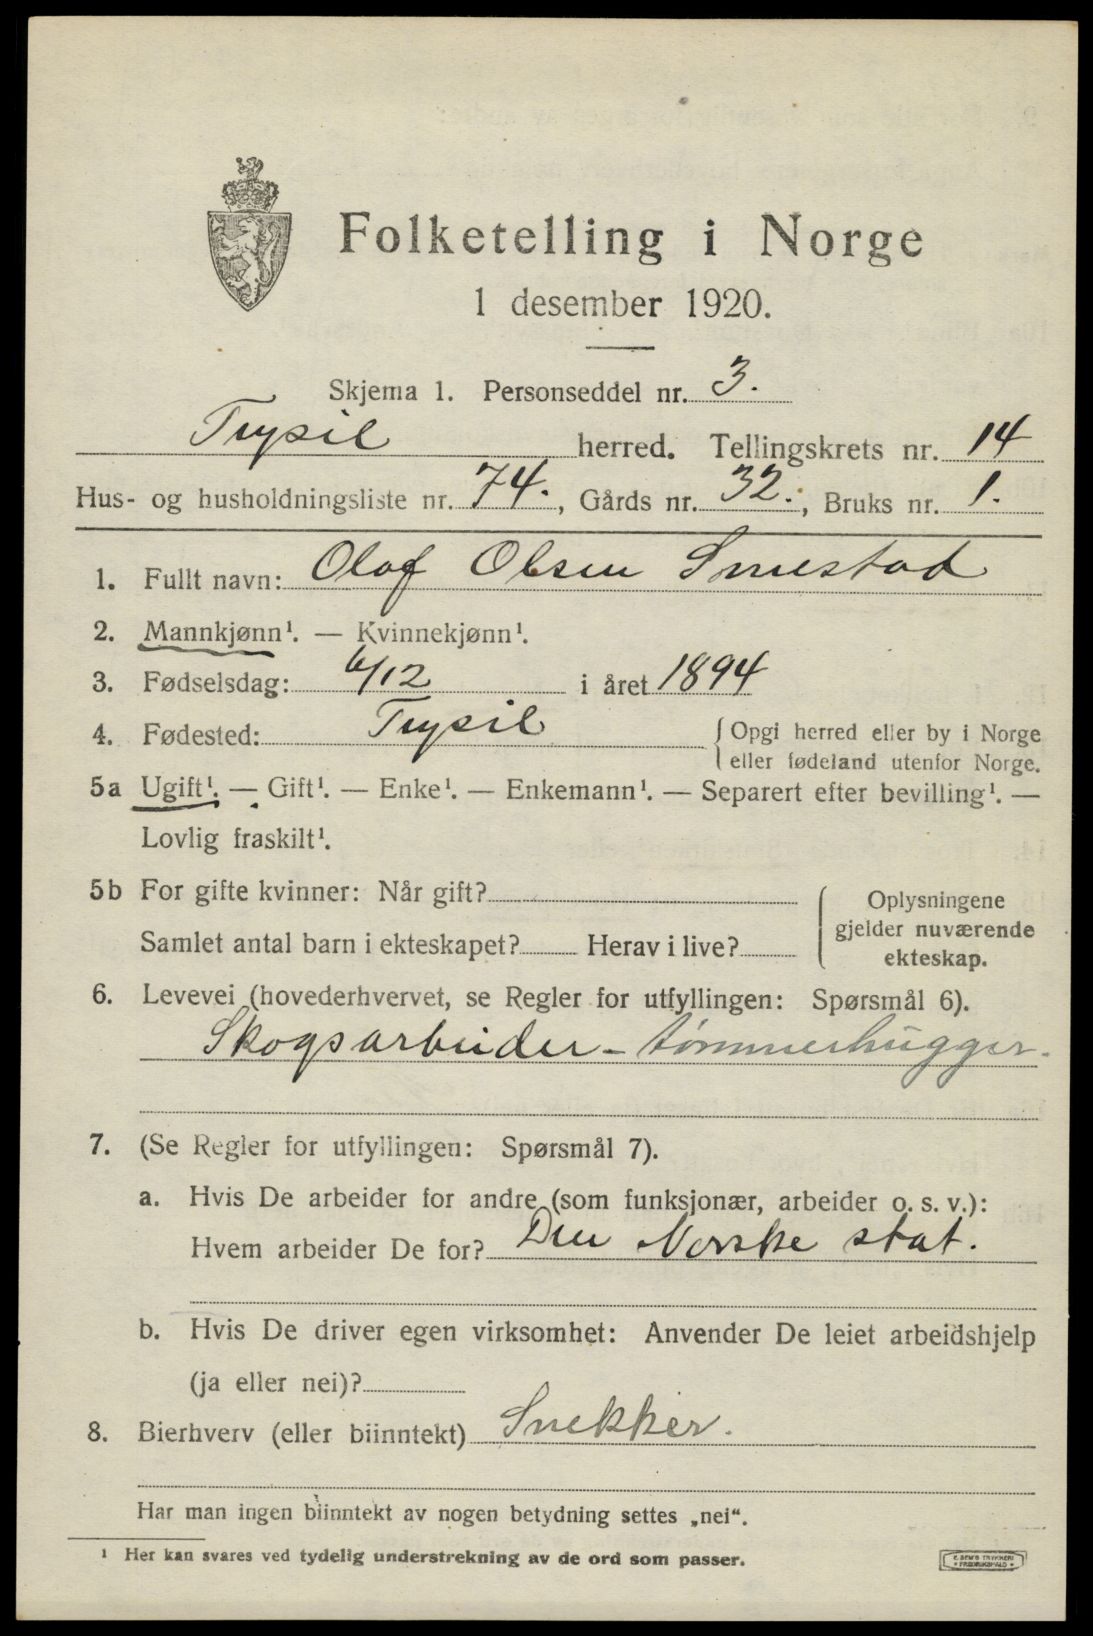 Folketelling i Norge
1 desember 1920.
Skjema 1. Personseddel nr. 3.
Trysil herred. Tellingskrets nr. 14
Hus- og husholdningsliste nr. 74., Gårds nr. 32., Bruks nr. 1.
1. Fullt navn: Olaf Olsen Smestad
2. Mannkjønn¹. — Kvinnekjønn¹.
3. Fødselsdag: 6/12 i året 1894
4. Fødested: Trysil { Opgi herred eller by i Norge
eller fødeland utenfor Norge.
5a Ugift¹. — Gift¹. — Enke¹. — Enkemann¹. — Separert efter bevilling¹. —
Lovlig fraskilt¹.
5b For gifte kvinner: Når gift?
Samlet antal barn i ekteskapet? Herav i live?
Oplysningene
gjelder nuværende
ekteskap.
6. Levevei (hovederhvervet, se Regler for utfyllingen: Spørsmål 6).
Skogsarbeider - tømmerhugger.
7. (Se Regler for utfyllingen: Spørsmål 7).
a. Hvis De arbeider for andre (som funksjonær, arbeider o. s. v.):
Hvem arbeider De for? Den Norske stat.
b. Hvis De driver egen virksomhet: Anvender De leiet arbeidshjelp
(ja eller nei)?
8. Bierhverv (eller biinntekt) Snekker.
Har man ingen biinntekt av nogen betydning settes „nei“.
¹ Her kan svares ved tydelig understrekning av de ord som passer.
E. SEM'S TRYKKERI
* FREDRIKSHALD *